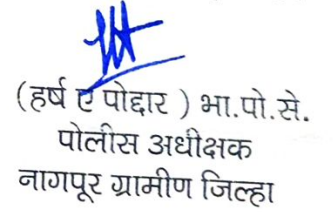 (हर्ष ए पोद्दार ) भा.पो.से.
पोलीस अधीक्षक
नागपूर ग्रामीण जिल्हा